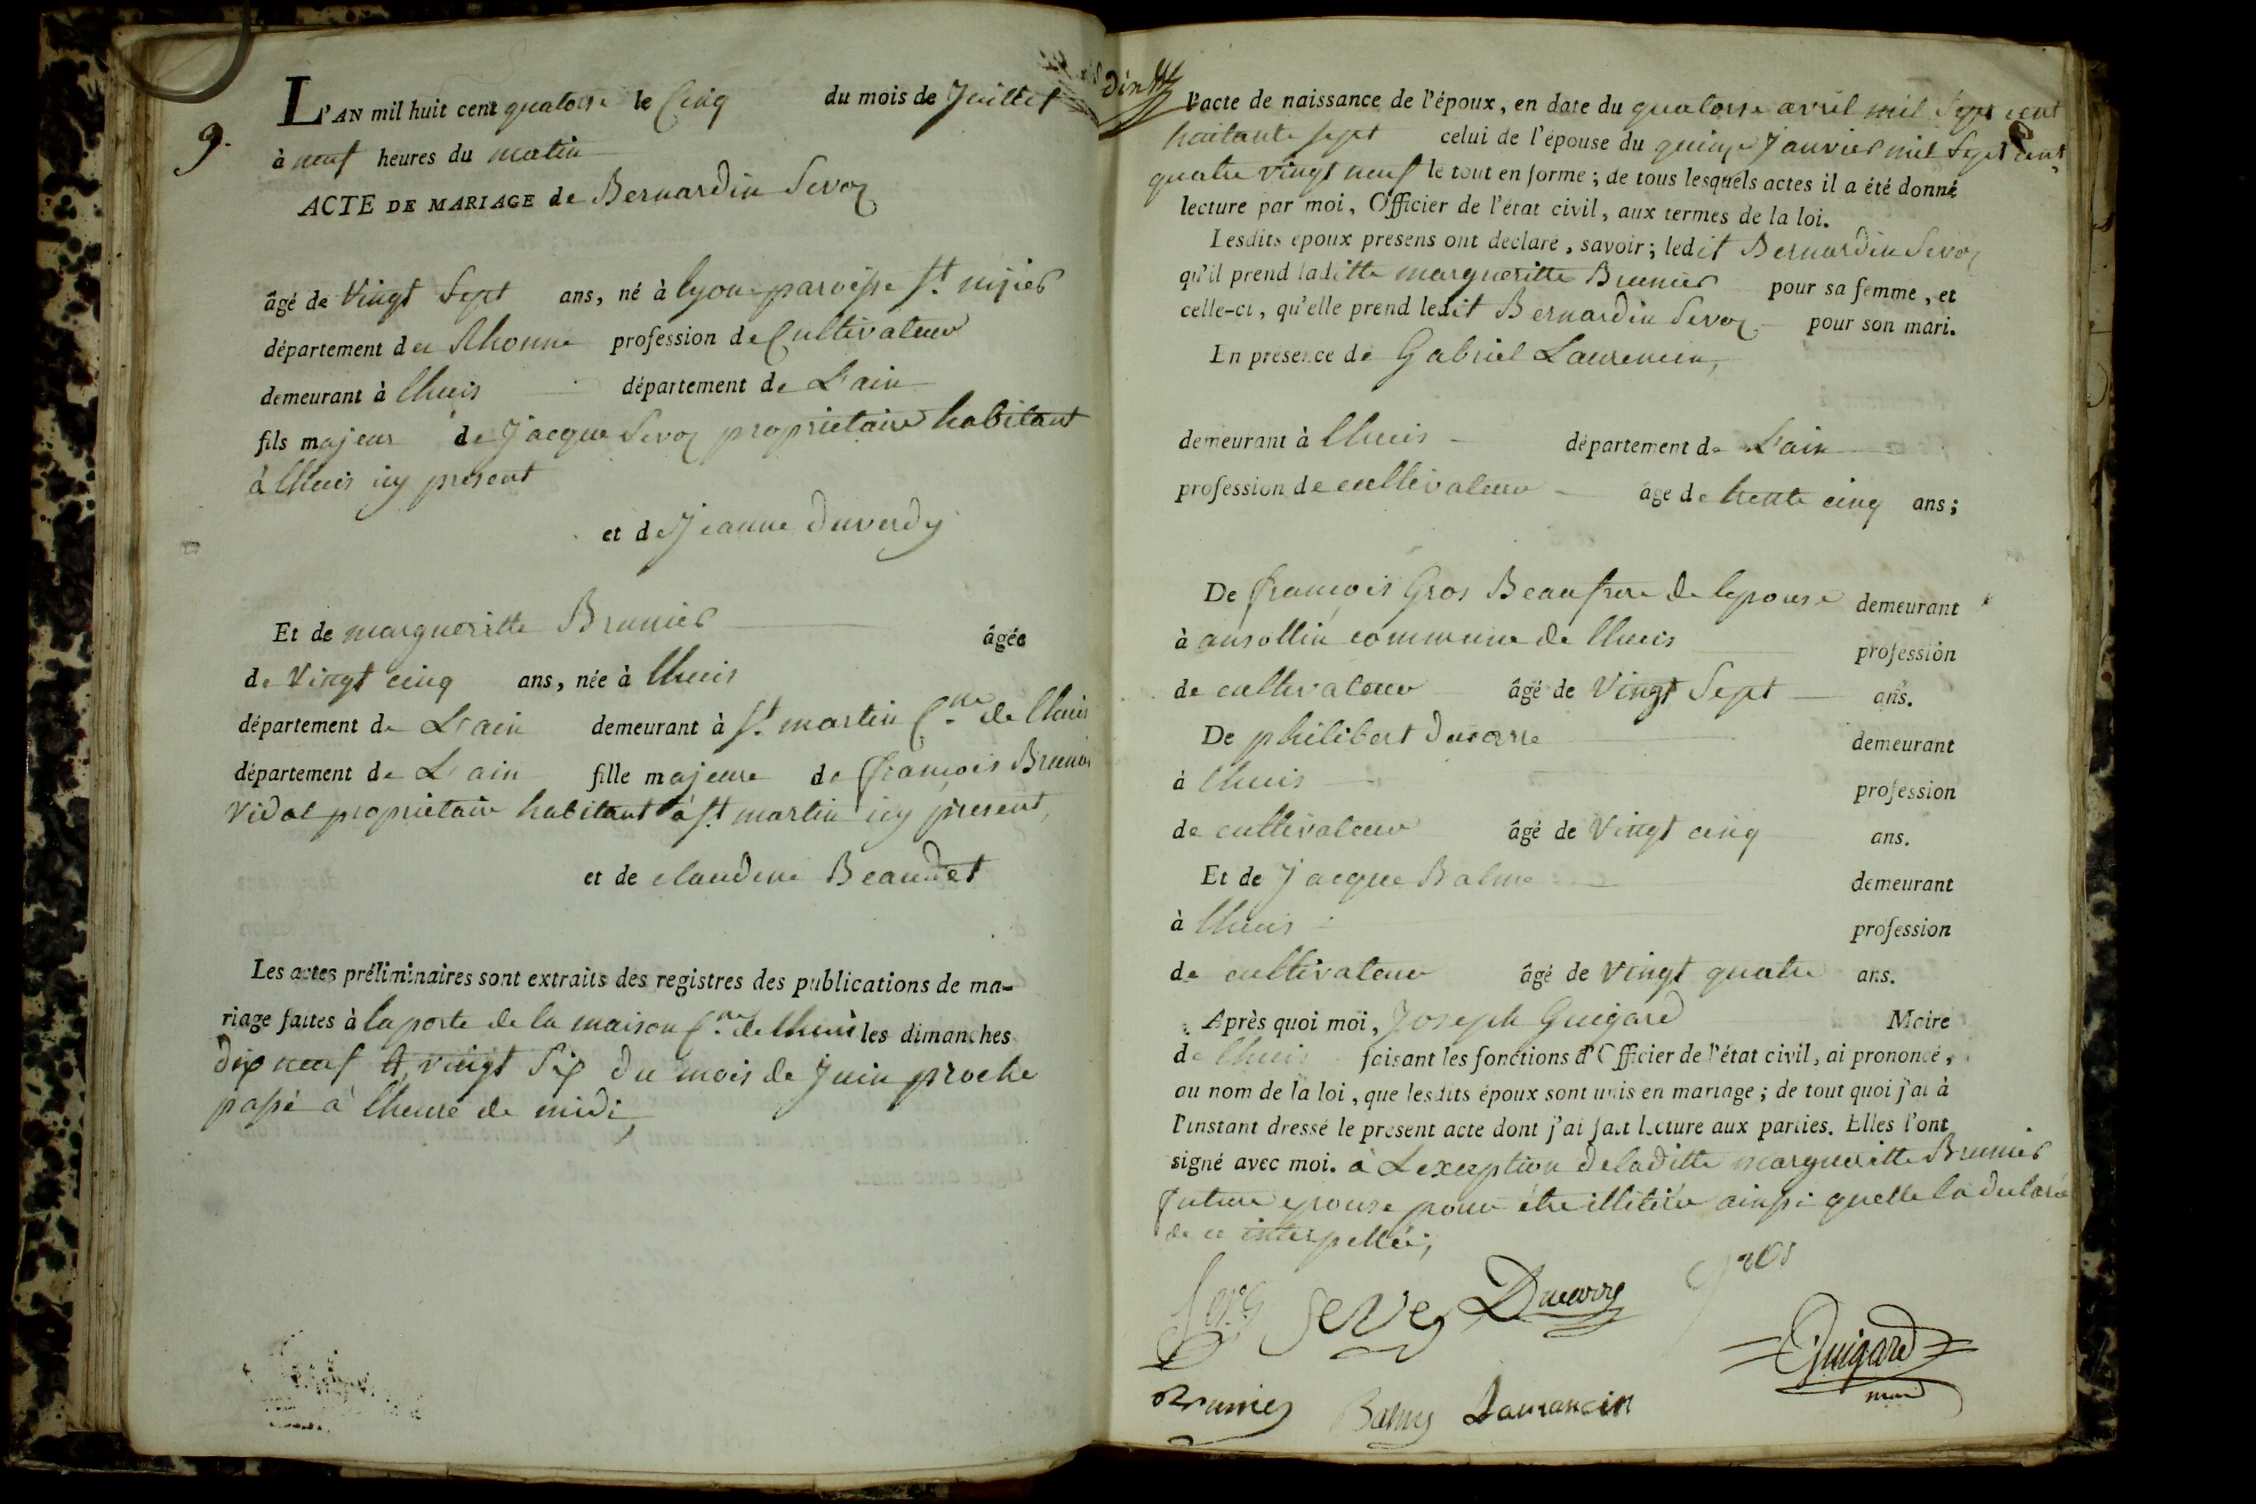 9.
L'AN mil huit cent quatorse le Cinq du mois de Juillet
à neuf heures du matin
ACTE DE MARIAGE de Bernardin Sevoz
âgé de Vingt Sept ans, né à lyon paroisse St. nizier
département du Rhonne profession de Cultivateur
demeurant à lhuis département de L'ain
fils majeur de Jacque Sevoz proprietaire habitant
à lhuis icy present
et de Jeanne duverdy
Et de margueritte Brunier âgée
de Vingt cinq ans, née à lhuis
département de L'ain demeurant à St. martin Cne. de lhuis
département de L'ain fille majeure de françois Brunier
Vidal proprietaire habitant à St martin icy present,
et de claudine Beaudet
Les actes préliminaires sont extraits des registres des publications de ma-
riage faites à la porte de la maison Cne. de lhuis les dimanches
dix neuf & vingt Six du mois de Juin proche
passé à lheure de midi,
l'acte de naissance de l'époux, en date du quatorse avril mil Sept cent
huitante sept celui de l'épouse du quinze Janvier mil Sept cent
quatre vingt neuf le tout en forme ; de tous lesquels actes il a été donné
lecture par moi, Officier de l'état civil, aux termes de la loi.
Lesdits époux présens ont déclaré, savoir ; ledit Bernardin Sevoz
qu'il prend laditte margueritte Brunier pour sa femme, et
celle-ci, qu'elle prend ledit Bernardin Sevoz pour son mari.
En présence de Gabriel Laurencin,
demeurant à lhuis département de L'ain
profession de cultivateur âgé de trente cinq ans ;
De françois Gros Beaufrere de lepouse demeurant
à ansollin commune de lhuis profession
de cultivateur âgé de Vingt Sept ans.
De philibert ducarre demeurant
à lhuis profession
de cultivateur âgé de Vingt cinq ans.
Et de Jacque Balme demeurant
à lhuis profession
de cultivateur âgé de vingt quatre ans.
Après quoi moi, Joseph Guigard Maire
de lhuis faisant les fonctions d'Officier de l'état civil, ai prononcé,
au nom de la loi, que lesdits époux sont unis en mariage ; de tout quoi j'ai à
l'instant dressé le présent acte dont j'ai fait lecture aux parties. Elles l'ont
signé avec moi. à L'exception de laditte margueritte Brunier
future epouse pour être illitérée ainsi quelle la declaré
de ce interpellée,
Sevoz Sevoz Ducarre Gros
Guigard
maire
Brunier Balme Laurancin